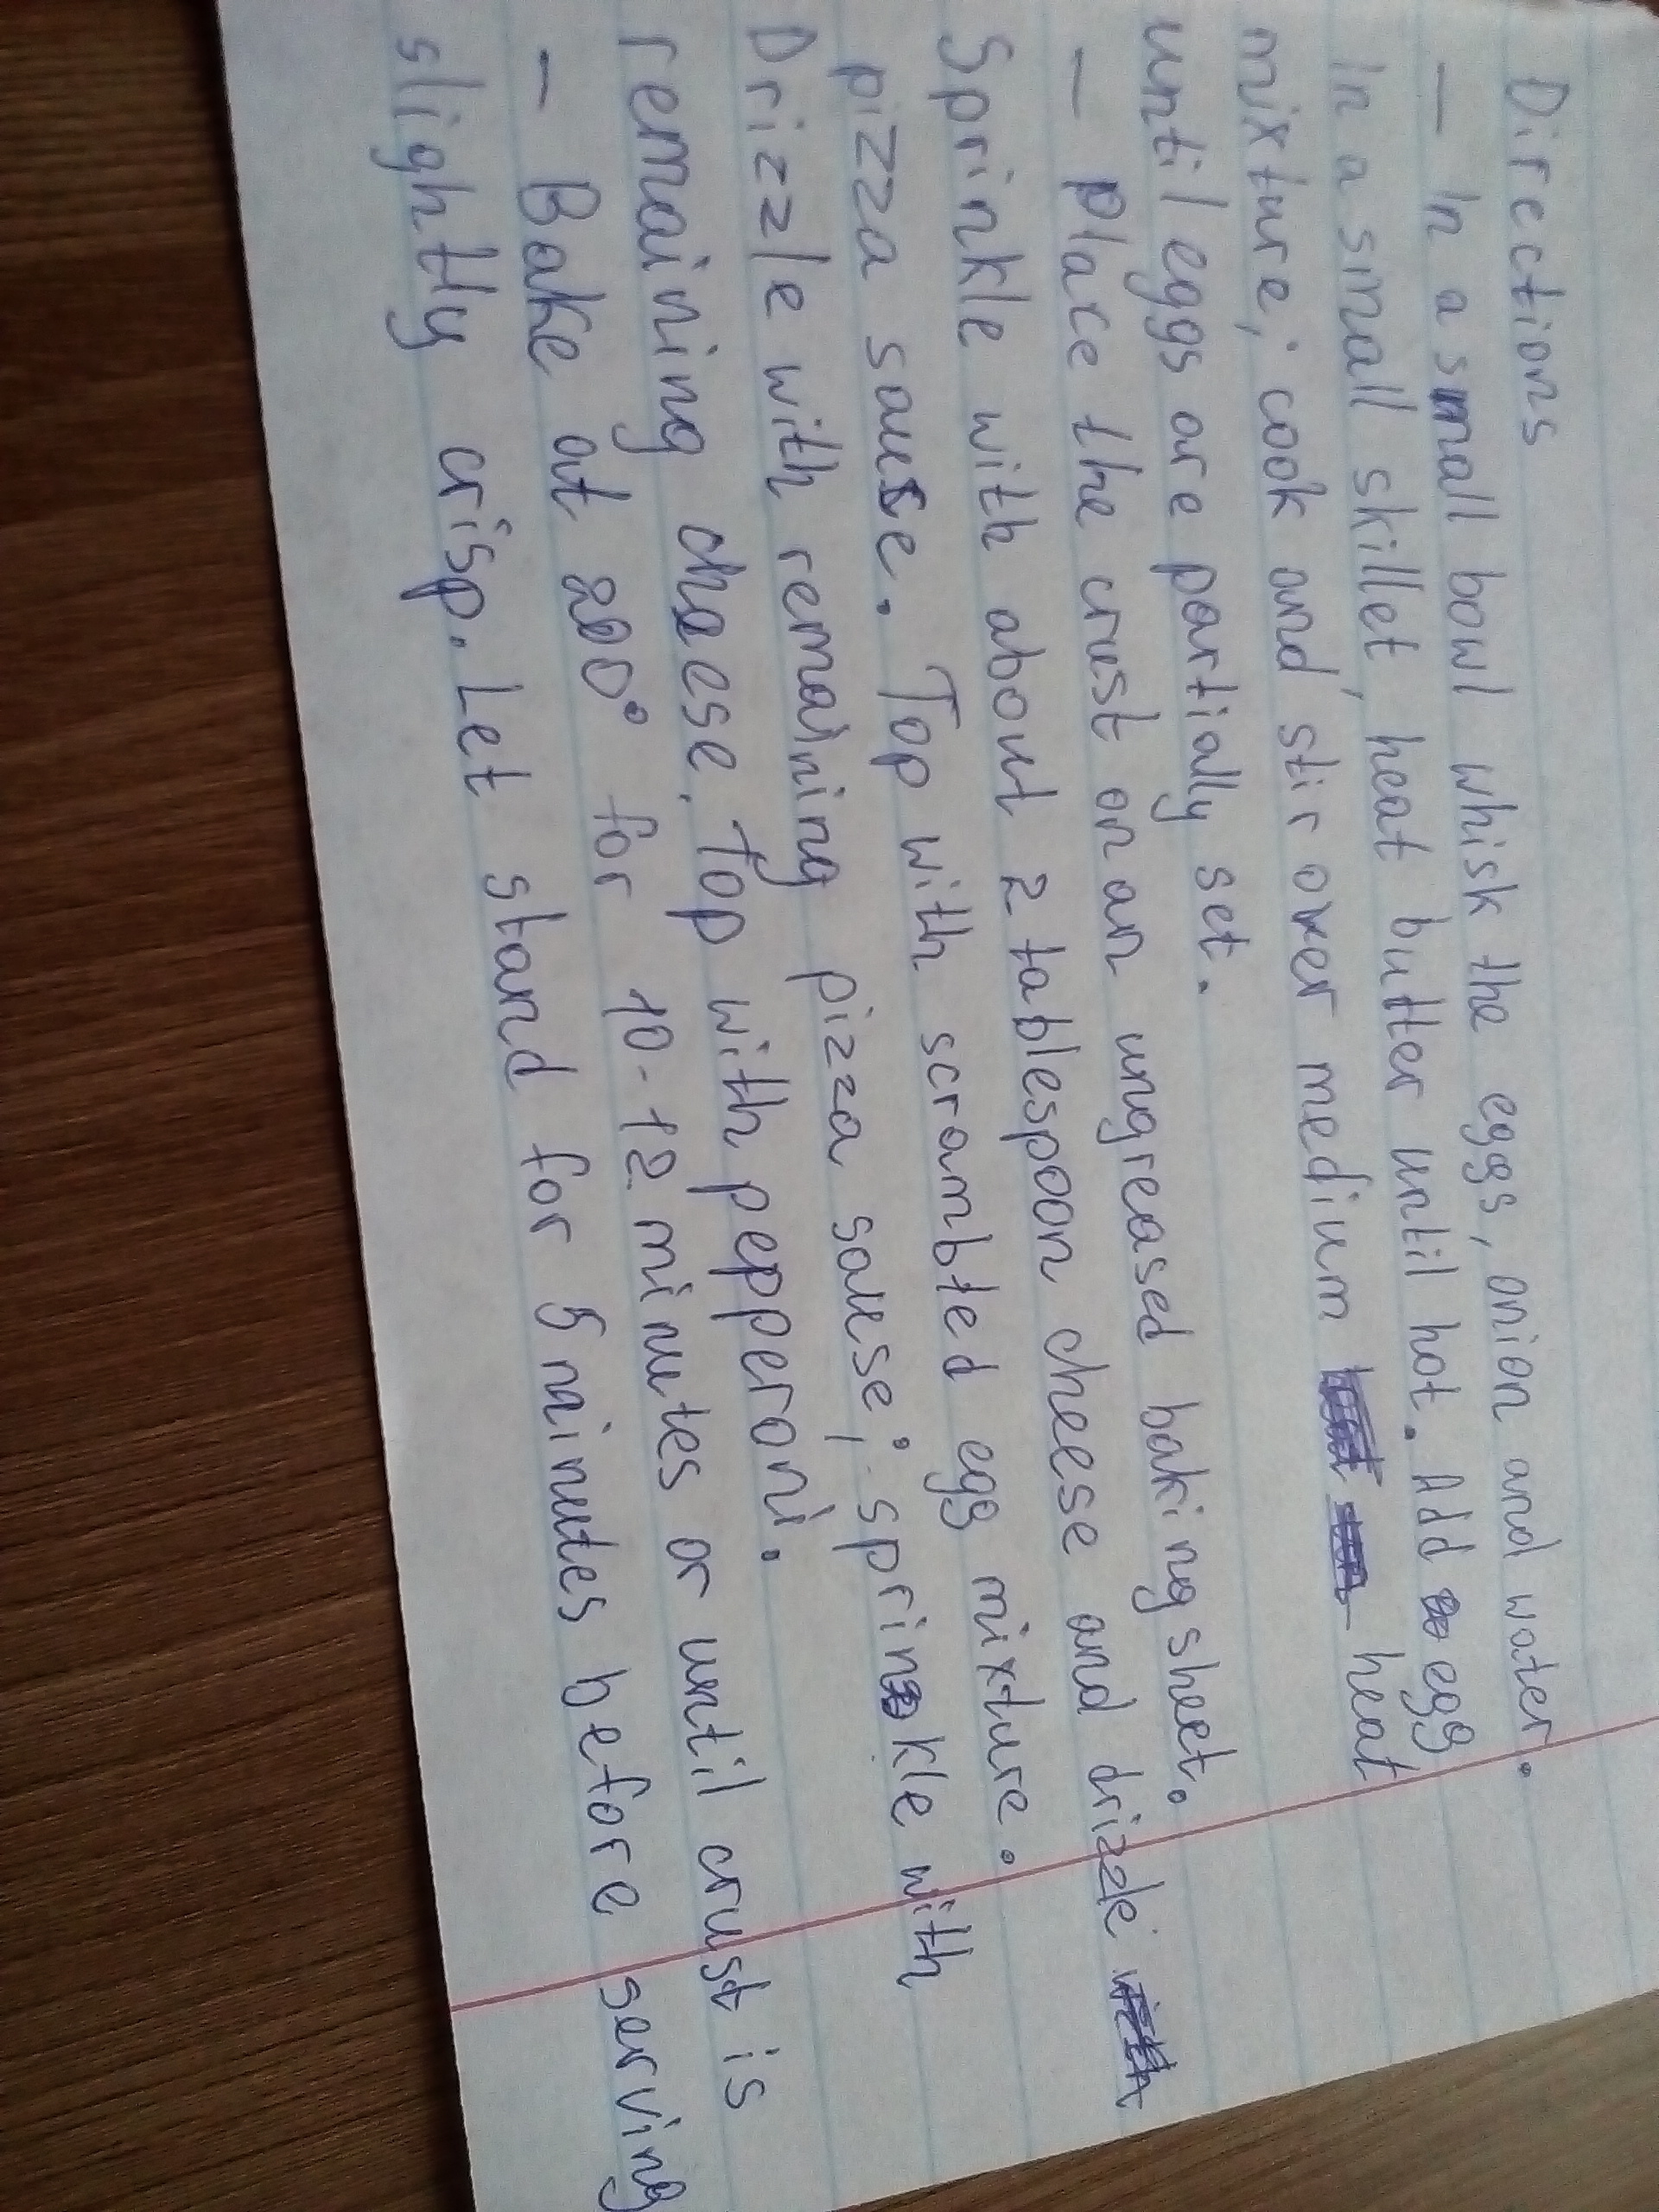 Directions
— In a small bowl whisk the eggs, onion and water.
In a small skillet, heat butter until hot. Add egg
mixture; cook and stir over medium heat
until eggs are partially set.
— Place the crust on an ungreased baking sheet.
Sprinkle with about 2 tablespoon cheese and drizzle
pizza sause. Top with scrambted egg mixture.
Drizzle with remaining pizza sause; sprinkle with
remaining chaese. Top with pepperoni.
— Bake at 200° for 10-12 minutes or until crust is
slightly crisp. Let stand for 5 minutes before serving